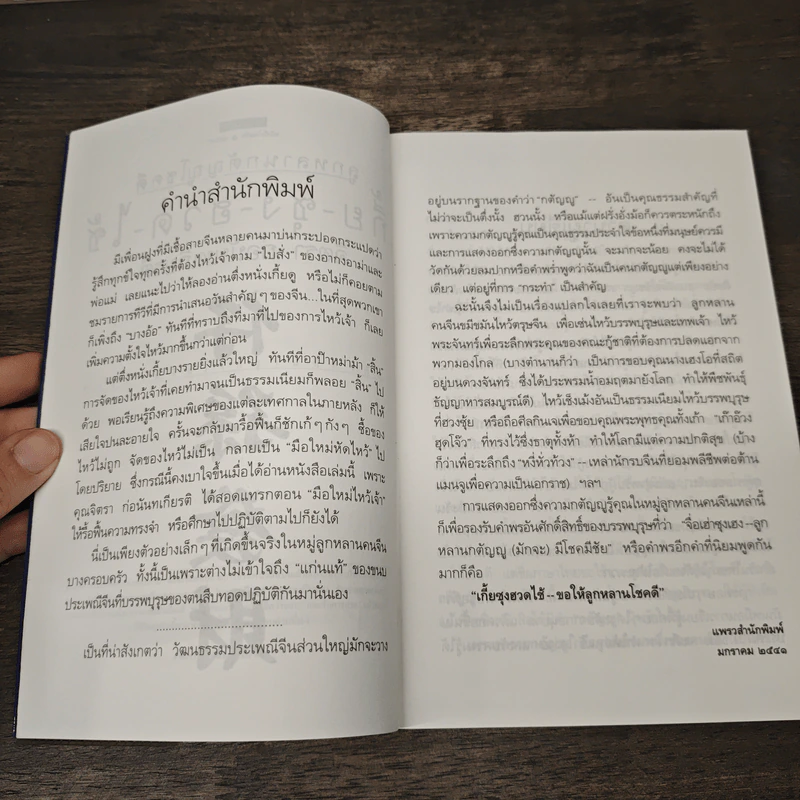 คำนำสำนักพิมพ์
มีเพื่อนฝูงที่มีเชื้อสายจีนหลายคนมาบ่นกระปอดกระแปดว่า
รู้สึกทุกข์ใจทุกครั้งที่ต้องไหว้เจ้าตาม “ใบสั่ง” ของอากงอาม่าและ
พ่อแม่ เลยแนะไปว่าให้ลองอ่านตึ่งหนั่งเกี้ยดู หรือไม่ก็คอยตาม
ชมรายการทีวีที่มีการนำเสนอวันสำคัญๆ ของจีน...ในที่สุดพวกเขา
ก็เพิ่งถึง “บางอ้อ” ทันทีที่ทราบถึงที่มาที่ไปของการไหว้เจ้า ก็เลย
เพิ่มความตั้งใจไหว้มากขึ้นกว่าแต่ก่อน
แต่ตึ่งหนั่งเกี้ยบางรายยิ่งแล้วใหญ่ ทันทีที่อาป๊าหม่าม้า “สิ้น”
การจัดของไหว้เจ้าที่เคยทำมาจนเป็นธรรมเนียมก็พลอย “สิ้น” ไป
ด้วย พอเรียนรู้ถึงความพิเศษของแต่ละเทศกาลในภายหลัง ก็ให้
เสียใจปนละอายใจ ครั้นจะกลับมารื้อฟื้นก็ชักเก้ๆ กังๆ ซื้อของ
ไหว้ไม่ถูก จัดของไหว้ไม่เป็น กลายเป็น “มือใหม่หัดไหว้” ไป
โดยปริยาย ซึ่งกรณีนี้คงเบาใจขึ้นเมื่อได้อ่านหนังสือเล่มนี้ เพราะ
คุณจิตรา ก่อนันทเกียรติ ได้สอดแทรกตอน “มือใหม่ไหว้เจ้า”
ให้รื้อฟื้นความทรงจำ หรือศึกษาไปปฏิบัติตามไปก็ยังได้
นี่เป็นเพียงตัวอย่างเล็กๆ ที่เกิดขึ้นจริงในหมู่ลูกหลานคนจีน
บางครอบครัว ทั้งนี้เป็นเพราะต่างไม่เข้าใจถึง “แก่นแท้” ของขนบ
ประเพณีจีนที่บรรพบุรุษของตนสืบทอดปฏิบัติกันมานั่นเอง
..............................
เป็นที่น่าสังเกตว่า วัฒนธรรมประเพณีจีนส่วนใหญ่มักจะวาง
อยู่บนรากฐานของคำว่า “กตัญญู” -- อันเป็นคุณธรรมสำคัญที่
ไม่ว่าจะเป็นตึ่งนั้ง ฮวนนั้ง หรือแม้แต่ฝรั่งอั้งม้อก็ควรตระหนักถึง
เพราะความกตัญญูรู้คุณเป็นคุณธรรมประจำใจข้อหนึ่งที่มนุษย์ควรมี
และการแสดงออกซึ่งความกตัญญูนั้น จะมากจะน้อย คงจะไม่ได้
วัดกันด้วยลมปากหรือคำพร่ำพูดว่าฉันเป็นคนกตัญญูแต่เพียงอย่าง
เดียว แต่อยู่ที่การ “กระทำ” เป็นสำคัญ
ฉะนั้นจึงไม่เป็นเรื่องแปลกใจเลยที่เราจะพบว่า ลูกหลาน
คนจีนขมีขมันไหว้ตรุษจีน เพื่อเซ่นไหว้บรรพบุรุษและเทพเจ้า ไหว้
พระจันทร์เพื่อระลึกพระคุณของคณะกู้ชาติที่ต้องการปลดแอกจาก
พวกมองโกล (บางตำนานก็ว่า เป็นการขอบคุณนางเฮงโอที่สถิต
อยู่บนดวงจันทร์ ซึ่งได้ประพรมน้ำอมฤตมายังโลก ทำให้พืชพันธุ์
ธัญญาหารสมบูรณ์ดี) ไหว้เช็งเม้งอันเป็นธรรมเนียมไหว้บรรพบุรุษ
ที่ฮวงซุ้ย หรือถือศีลกินเจเพื่อขอบคุณพระพุทธคุณทั้งเก้า “เก๊าอ๊วง
ฮุดโจ๊ว” ที่ทรงไว้ซึ่งธาตุทั้งห้า ทำให้โลกมีแต่ความปกติสุข (บ้าง
ก็ว่าเพื่อระลึกถึง “หงี่หั่วท้วง” -- เหล่านักรบจีนที่ยอมพลีชีพต่อต้าน
แมนจูเพื่อความเป็นเอกราช) ฯลฯ
การแสดงออกซึ่งความกตัญญูรู้คุณในหมู่ลูกหลานคนจีนเหล่านี้
ก็เพื่อรองรับคำพรอันศักดิ์สิทธิ์ของบรรพบุรุษที่ว่า “จื่อเฮ่าซุงเฮง -- ลูก
หลานกตัญญู (มักจะ) มีโชคมีชัย” หรือคำพรอีกคำที่นิยมพูดกัน
มากก็คือ
“เกี้ยซุงฮวดไช้ -- ขอให้ลูกหลานโชคดี”
แพรวสำนักพิมพ์
มกราคม ๒๕๔๑